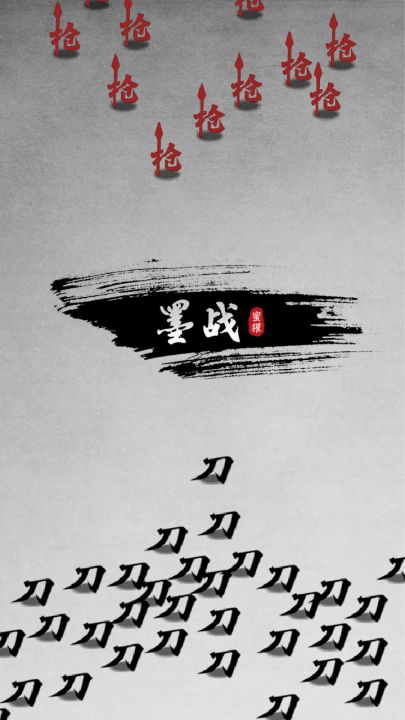 枪 枪 枪
枪 枪 枪 枪
枪
枪
墨战
蜜獾
刀
刀 刀
刀 刀 刀 刀 刀 刀
刀 刀 刀 刀
刀 刀 刀 刀
刀 刀 刀 刀
刀 刀 刀 刀
刀 刀 刀
刀 刀 刀
刀